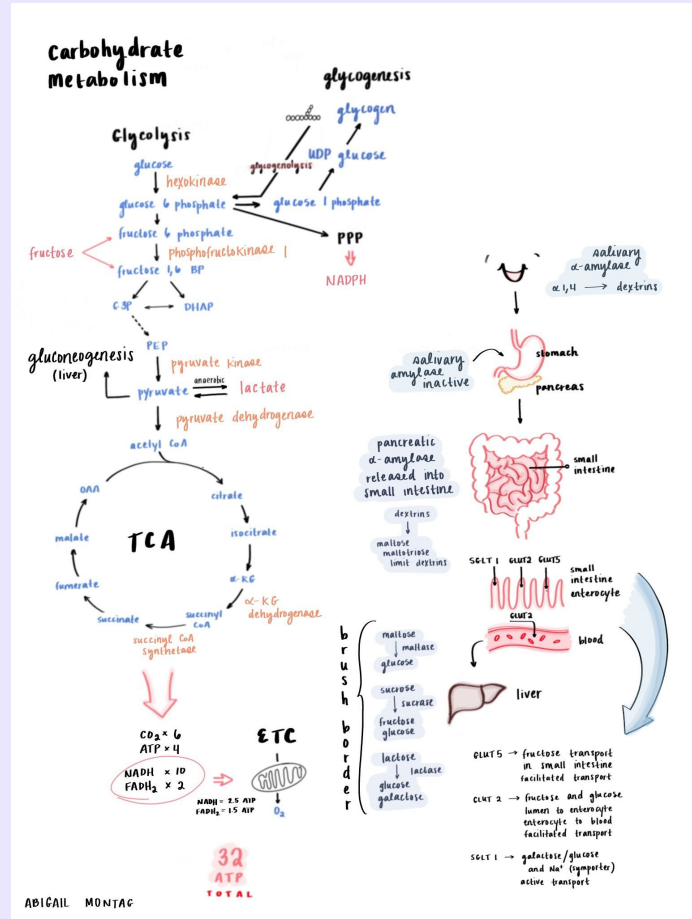 carbohydrate
metabolism
glycogenesis
glycogen
UDP glucose
glycogenolysis
Glycolysis
glucose
hexokinase
glucose 6 phosphate
glucose 1 phosphate
fructose 6 phosphate
PPP
NADPH
fructose
phosphofructokinase 1
fructose 1,6 BP
G3P
DHAP
PEP
gluconeogenesis
(liver)
pyruvate kinase
pyruvate
anaerobic
lactate
pyruvate dehydrogenase
acetyl CoA
TCA
OAA
citrate
malate
isocitrate
fumerate
α-KG
α-KG
dehydrogenase
succinate
succinyl
CoA
succinyl CoA
synthetase
CO2 x 6
ATP x 4
NADH x 10
FADH2 x 2
ETC
NADH = 2.5 ATP
FADH2 = 1.5 ATP
O2
32
ATP
TOTAL
ABIGAIL MONTAG
salivary
α-amylase
α1,4 → dextrins
salivary
amylase
inactive
stomach
pancreas
pancreatic
α-amylase
released into
small intestine
small
intestine
dextrins
maltose
maltotriose
limit dextrins
SGLT 1 GLUT2 GLUT5
small
intestine
enterocyte
GLUT2
blood
liver
brush border
maltose
maltase
glucose
sucrose
sucrase
fructose
glucose
lactose
lactase
glucose
galactose
GLUT 5 → fructose transport
in small intestine
facilitated transport
GLUT 2 → fructose and glucose
lumen to enterocyte
enterocyte to blood
facilitated transport
SGLT 1 → galactose/glucose
and Na+ (symporter)
active transport